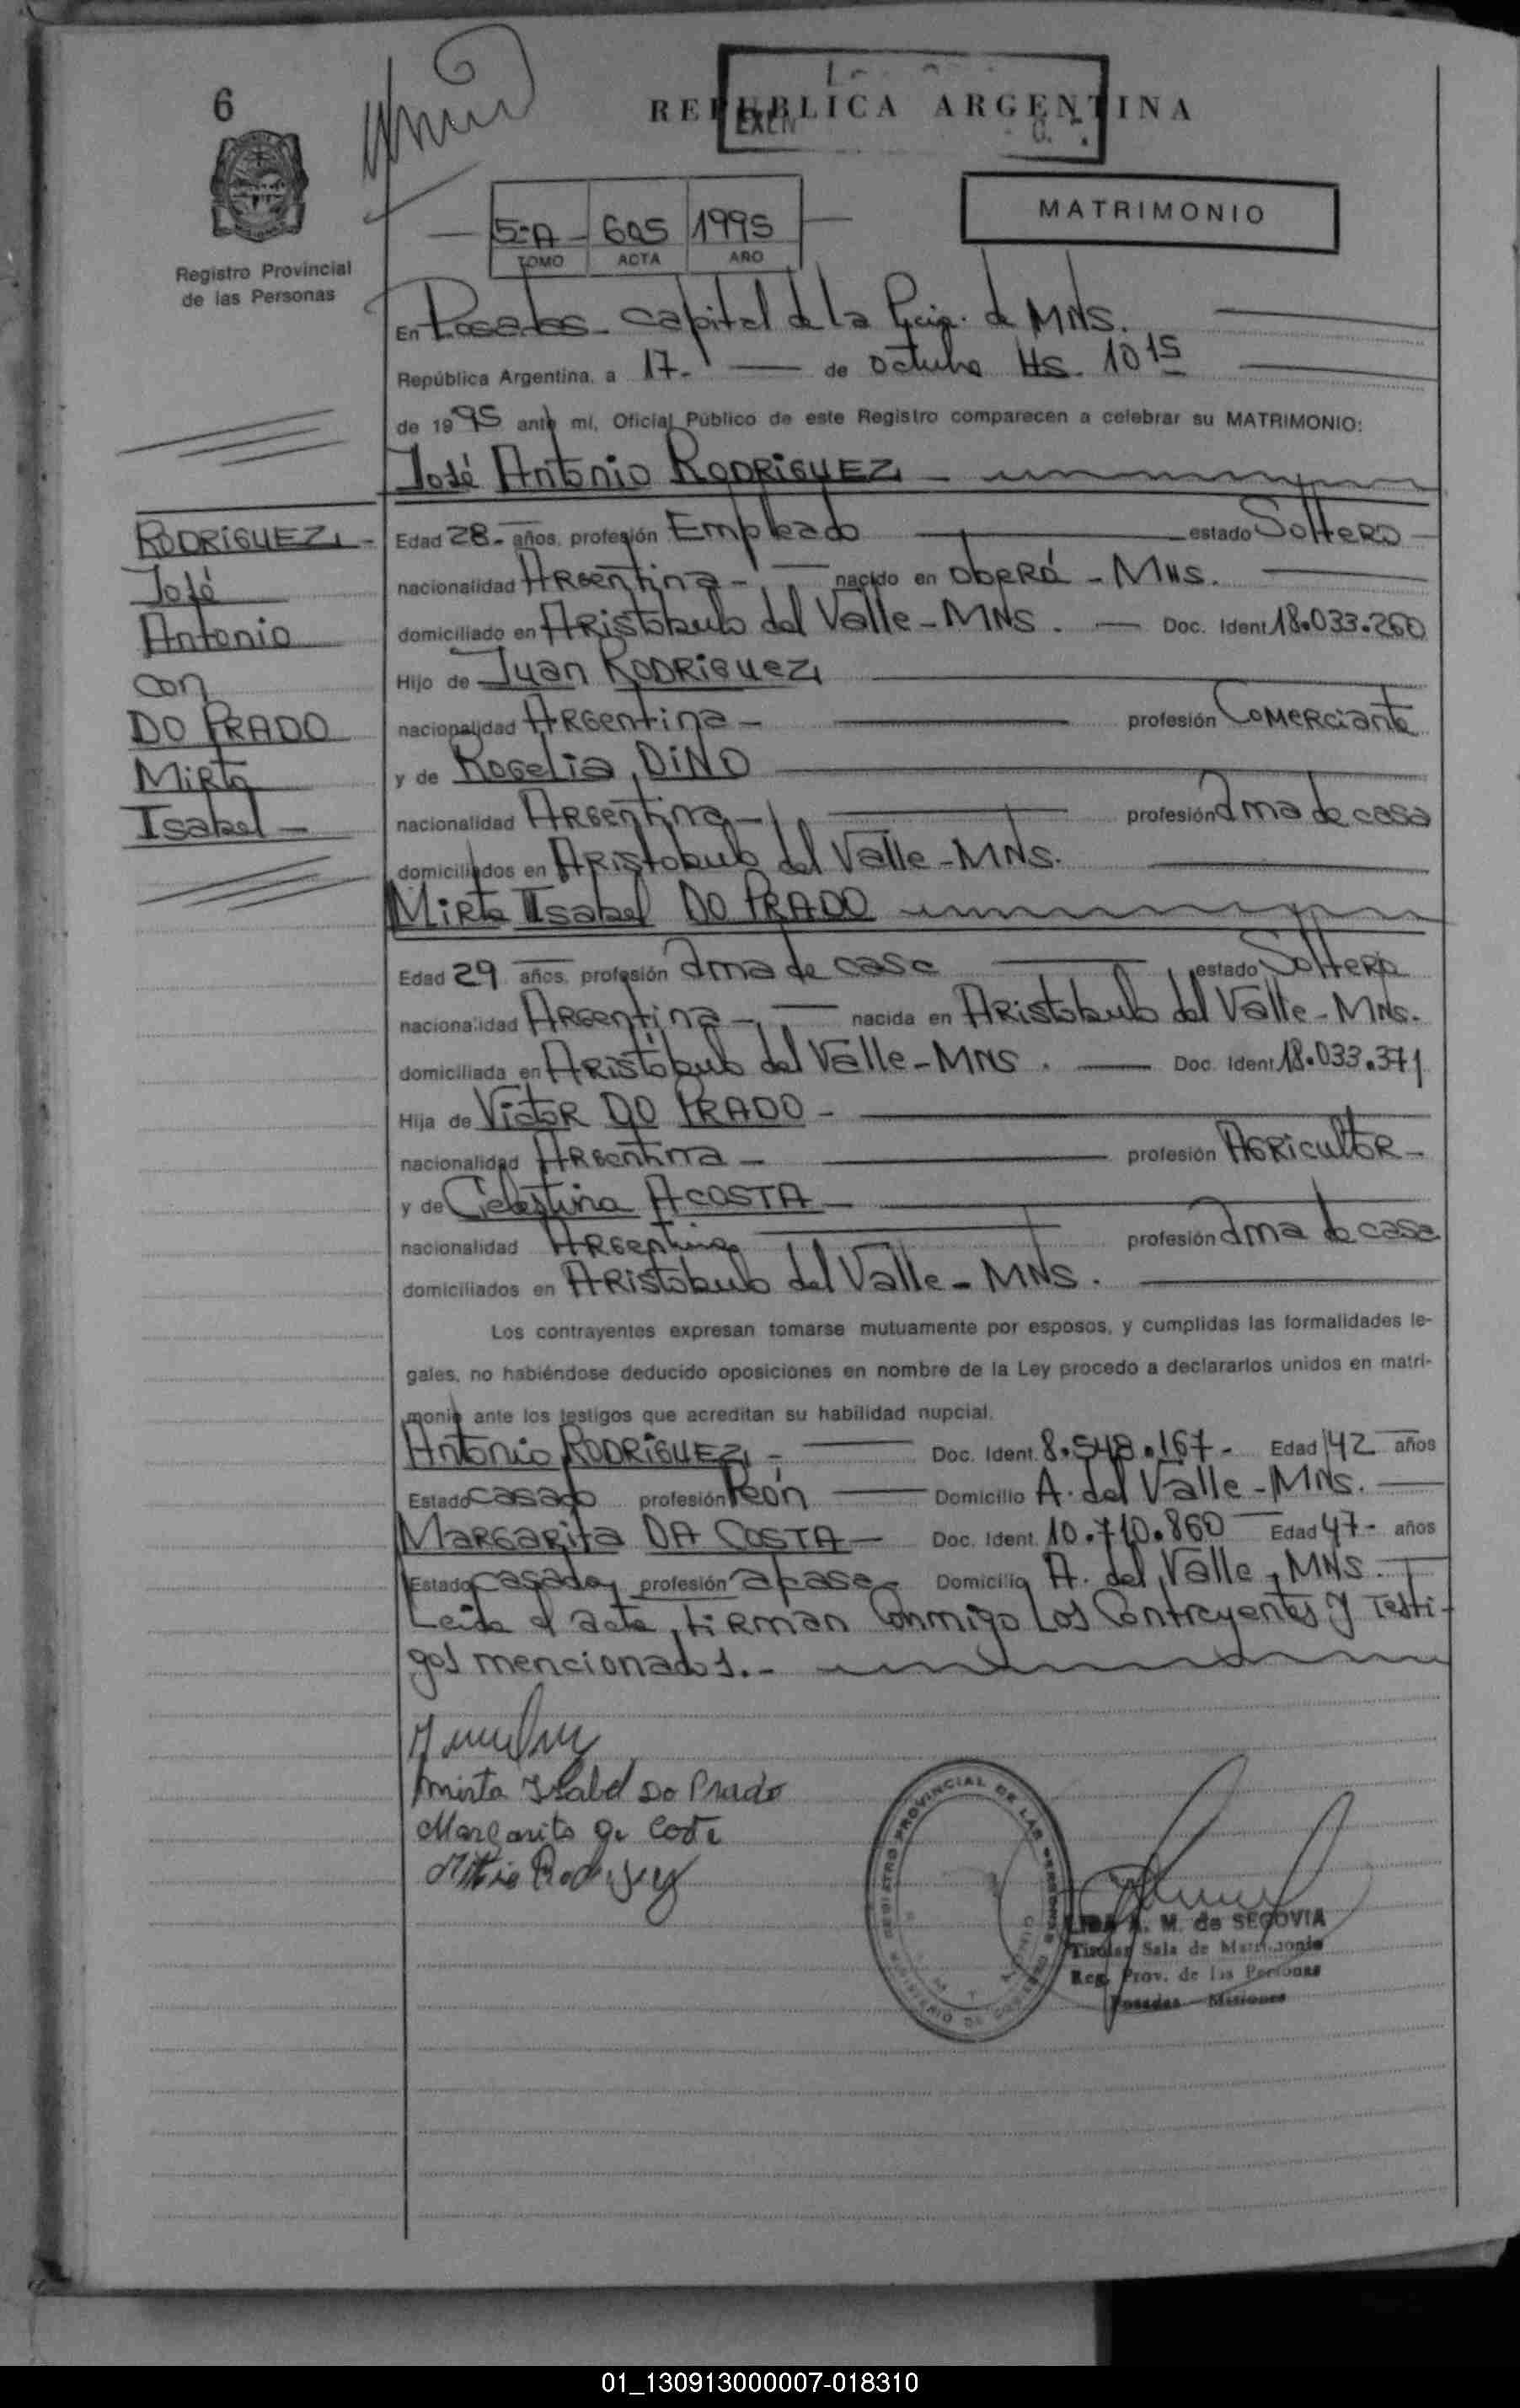 6
REPUBLICA ARGENTINA
EXEN
MATRIMONIO
5-A - 605 1995
TOMO ACTA AÑO
Registro Provincial
de las Personas
En Posadas - capital de la Pcia. de MNS.
República Argentina, a 17.- de octubre Hs. 10 15
de 1995 ante mí, Oficial Público de este Registro comparecen a celebrar su MATRIMONIO:
José Antonio RODRIGUEZ -
RODRÍGUEZ -
José
Antonio
con
DO PRADO
Mirta
Isabel -
Edad 28.- años, profesión Empleado estado Soltero -
nacionalidad Argentina - nacido en Oberá - MNS.
domiciliado en Aristobulo del Valle - MNS. - Doc. Ident 18.033.260
Hijo de Juan RODRIGUEZ
nacionalidad Argentina - profesión Comerciante
y de Rogelia DINO
nacionalidad Argentina - profesión Ama de casa
domiciliados en Aristobulo del Valle - MNS.
Mirta Isabel DO PRADO
Edad 29 años, profesión Ama de casa estado Soltera
nacionalidad Argentina - nacida en Aristobulo del Valle - MNS.
domiciliada en Aristóbulo del Valle - MNS. - Doc. Ident 18.033.371
Hija de Victor DO PRADO -
nacionalidad Argentina - profesión Agricultor -
y de Celestina ACOSTA -
nacionalidad Argentina profesión Ama de casa
domiciliados en Aristobulo del Valle - MNS.
Los contrayentes expresan tomarse mutuamente por esposos, y cumplidas las formalidades le-
gales, no habiéndose deducido oposiciones en nombre de la Ley procedo a declararlos unidos en matri-
monio ante los testigos que acreditan su habilidad nupcial.
Antonio RODRÍGUEZ - Doc. Ident. 8.548.167 - Edad 42 años
Estado casado profesión Peón Domicilio A. del Valle - MNS.
MARGARITA DA COSTA - Doc. Ident. 10.710.860 Edad 47 - años
Estado casada profesión a casa - Domicilio A. del Valle - MNS.
Leida el acta, firman conmigo Los Contrayentes y Testi-
gos mencionados.-
Mirta Isabel Do Prado
Margarita
REGISTRO PROVINCIAL DE LAS PERSONAS
LIDA A. M. de SEGOVIA
Titular Sala de Matrimonio
Reg. Prov. de las Personas
Posadas - Misiones
01_130913000007-018310